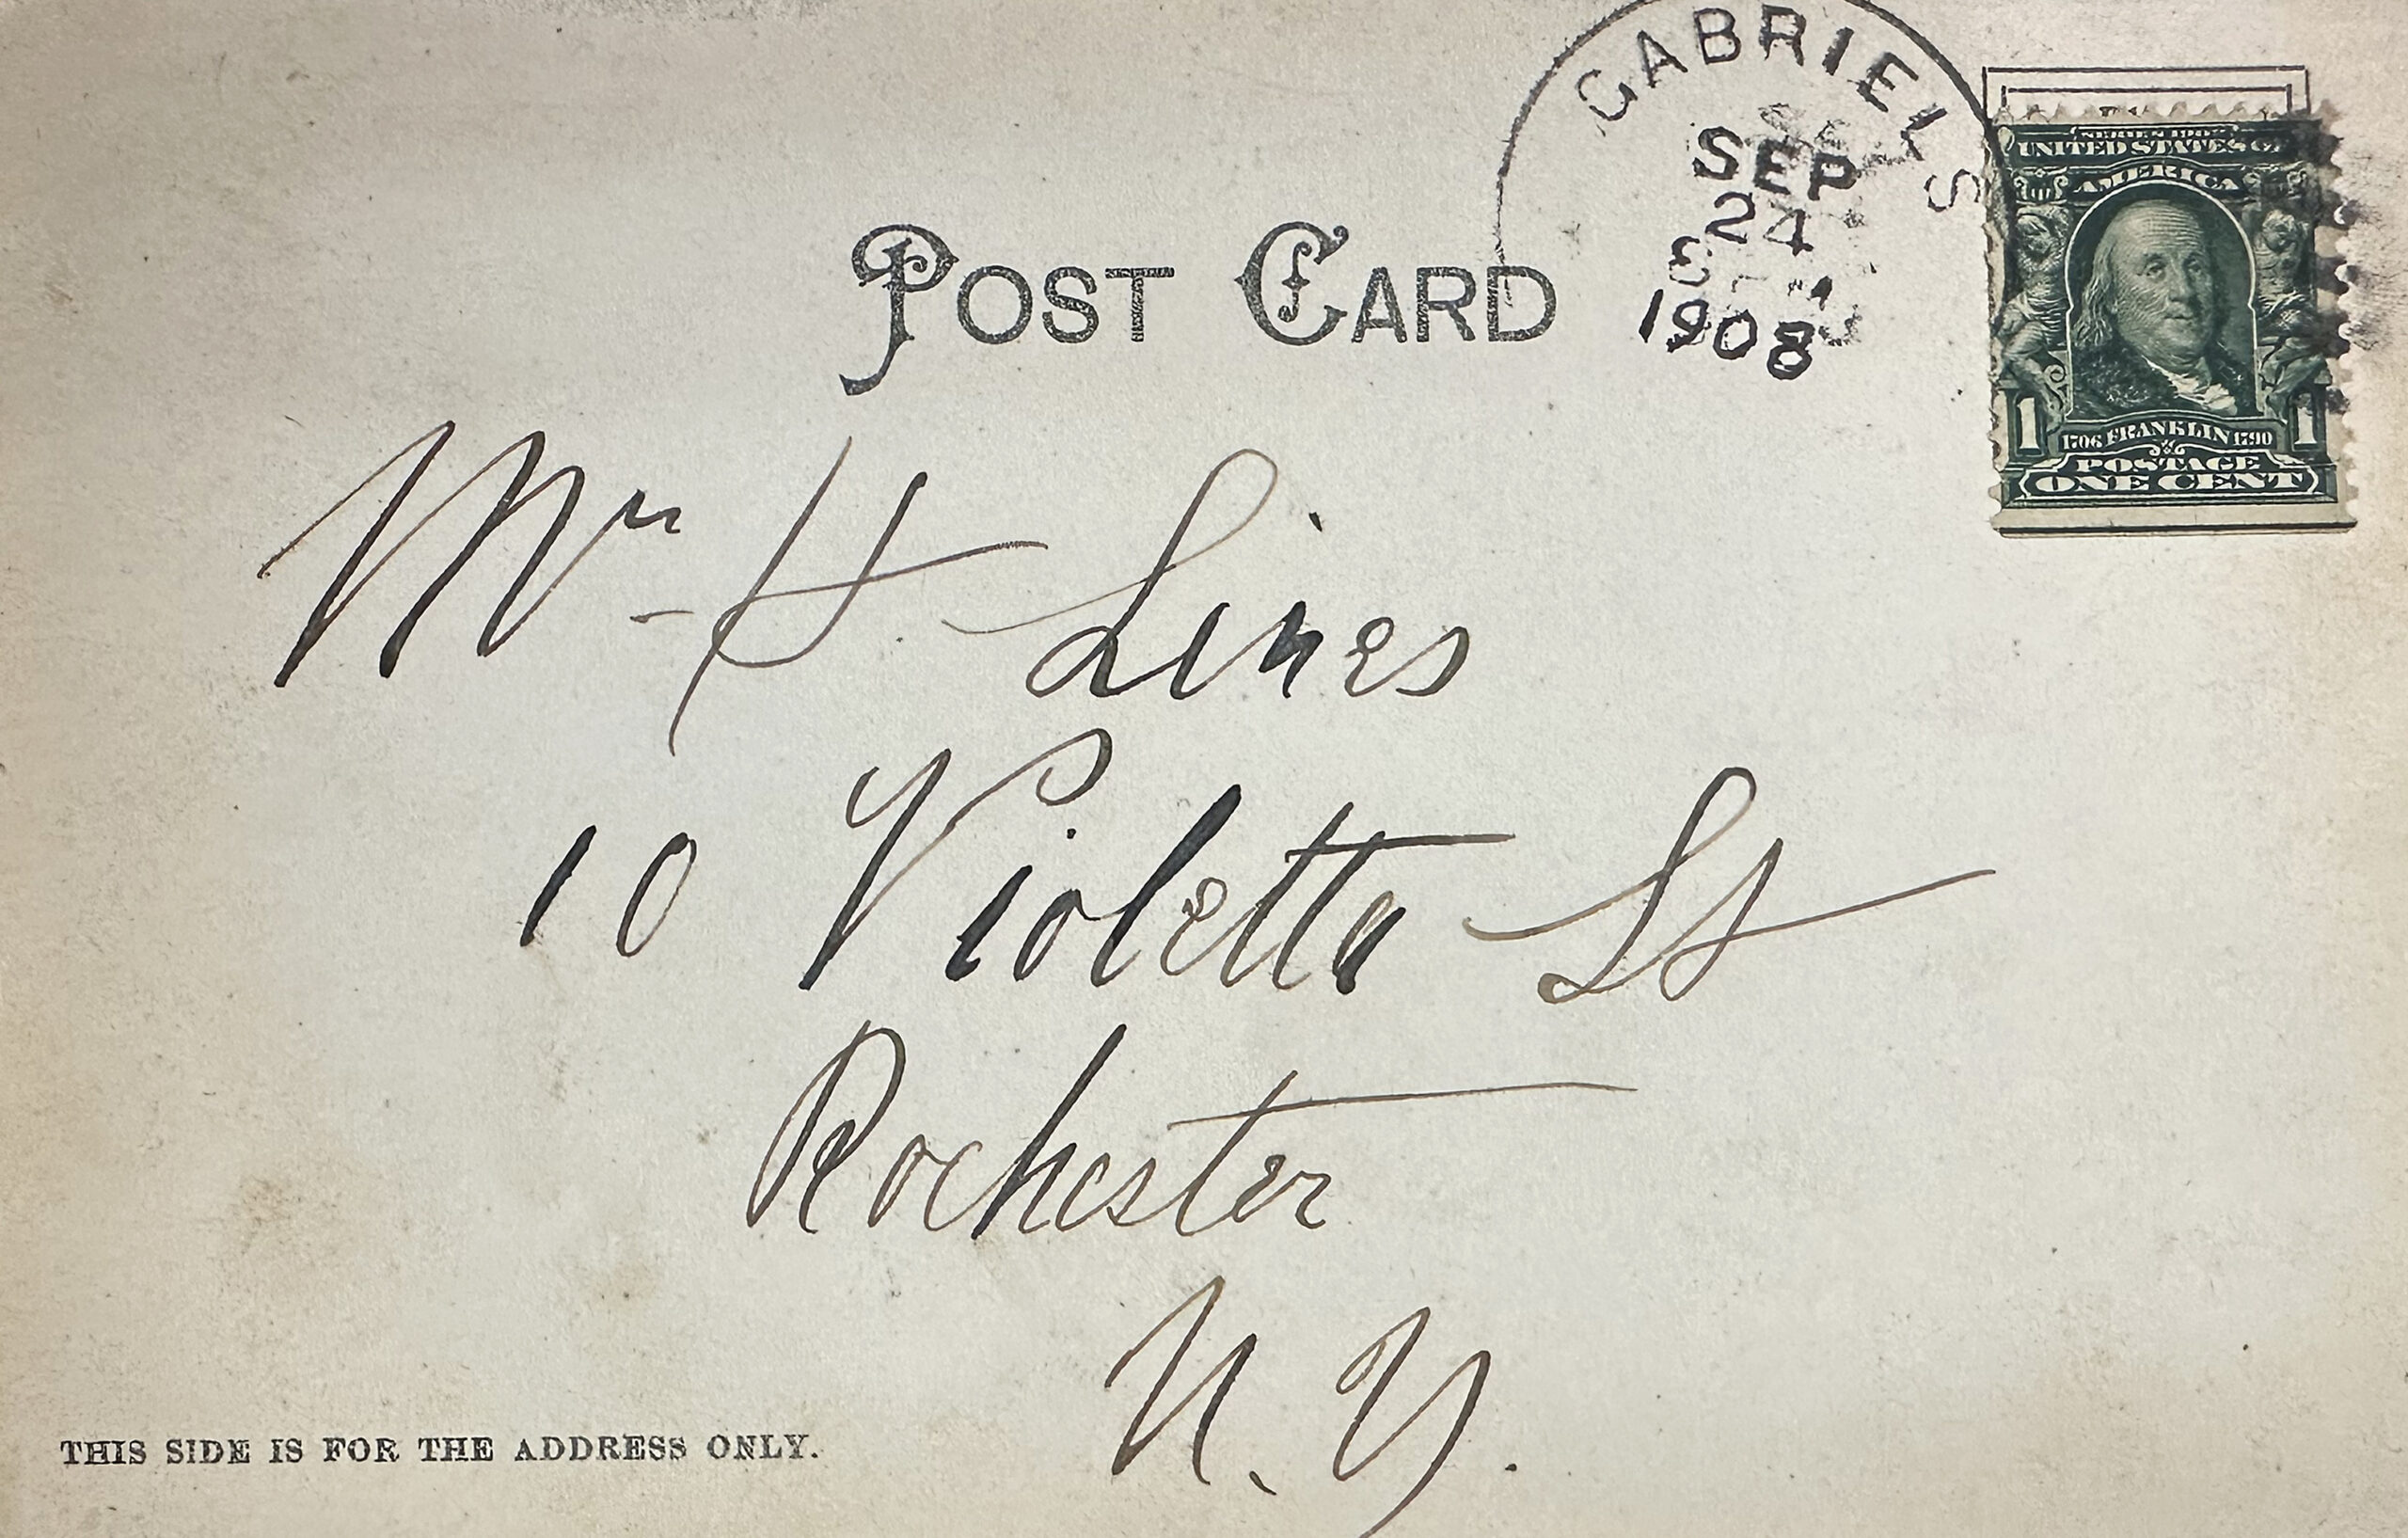 GABRIELS
SEP
24
1908
SERIES 1902
UNITED STATES OF
AMERICA
1 1706 FRANKLIN 1790 1
POSTAGE
ONE CENT
POST CARD
Mr H Lines
10 Violetta St
Rochester
N.Y.
THIS SIDE IS FOR THE ADDRESS ONLY.